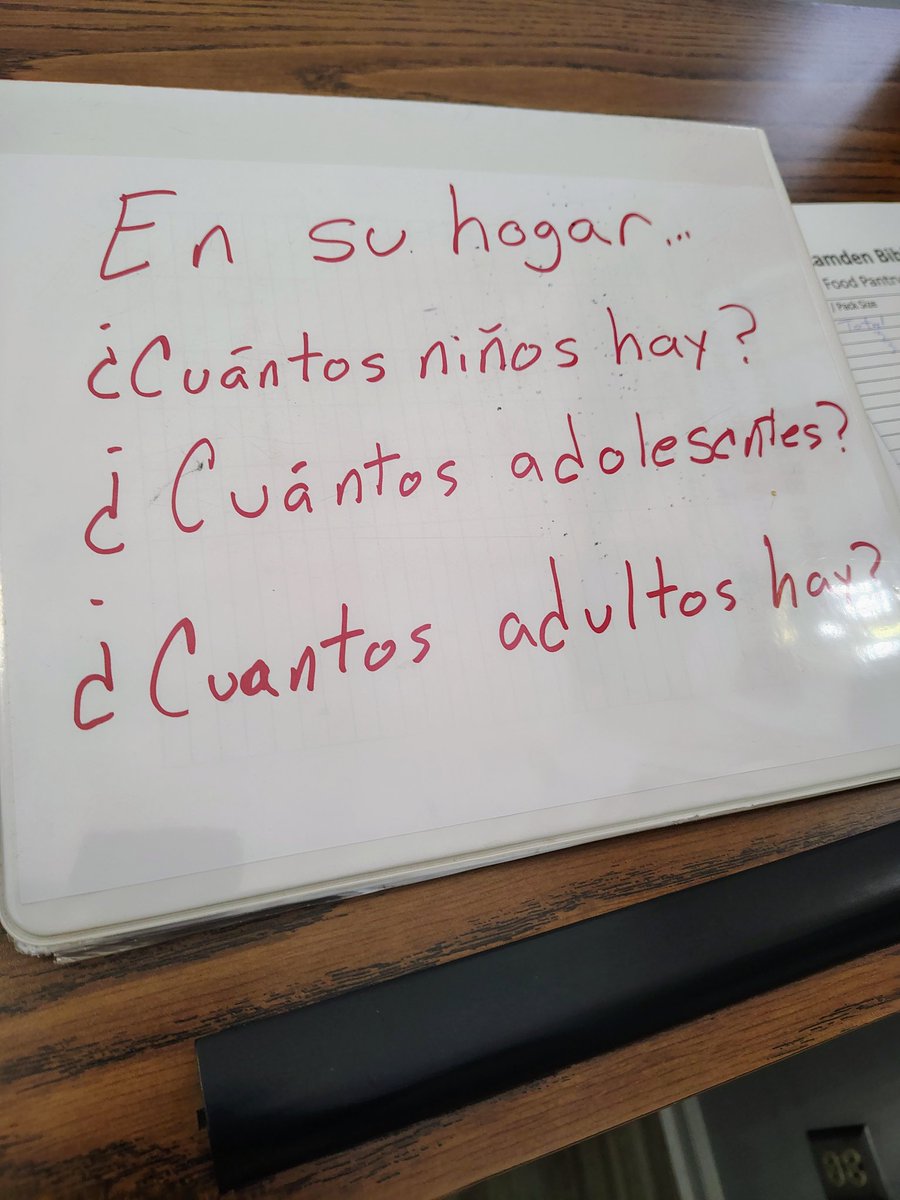 En su hogar...
¿Cuántos niños hay?
¿Cuántos adolesentes?
¿Cuantos adultos hay?
amden Bib
Food Pantr
/ Pack Size
Total
30